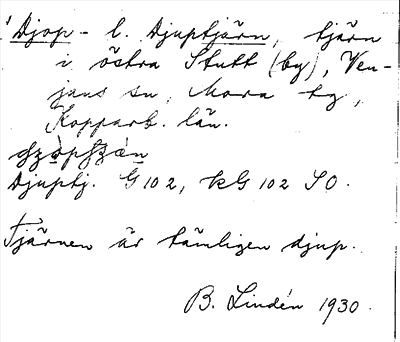 Djop- l. Djuptjärn, tjärn
i östra Stutt (by), Ven-
jans sn, Mora tg,
Kopparb. län.
Djuptj. G 102, kG 102 SO.
Tjärnen är tämligen djup.
B. Lindén 1930.